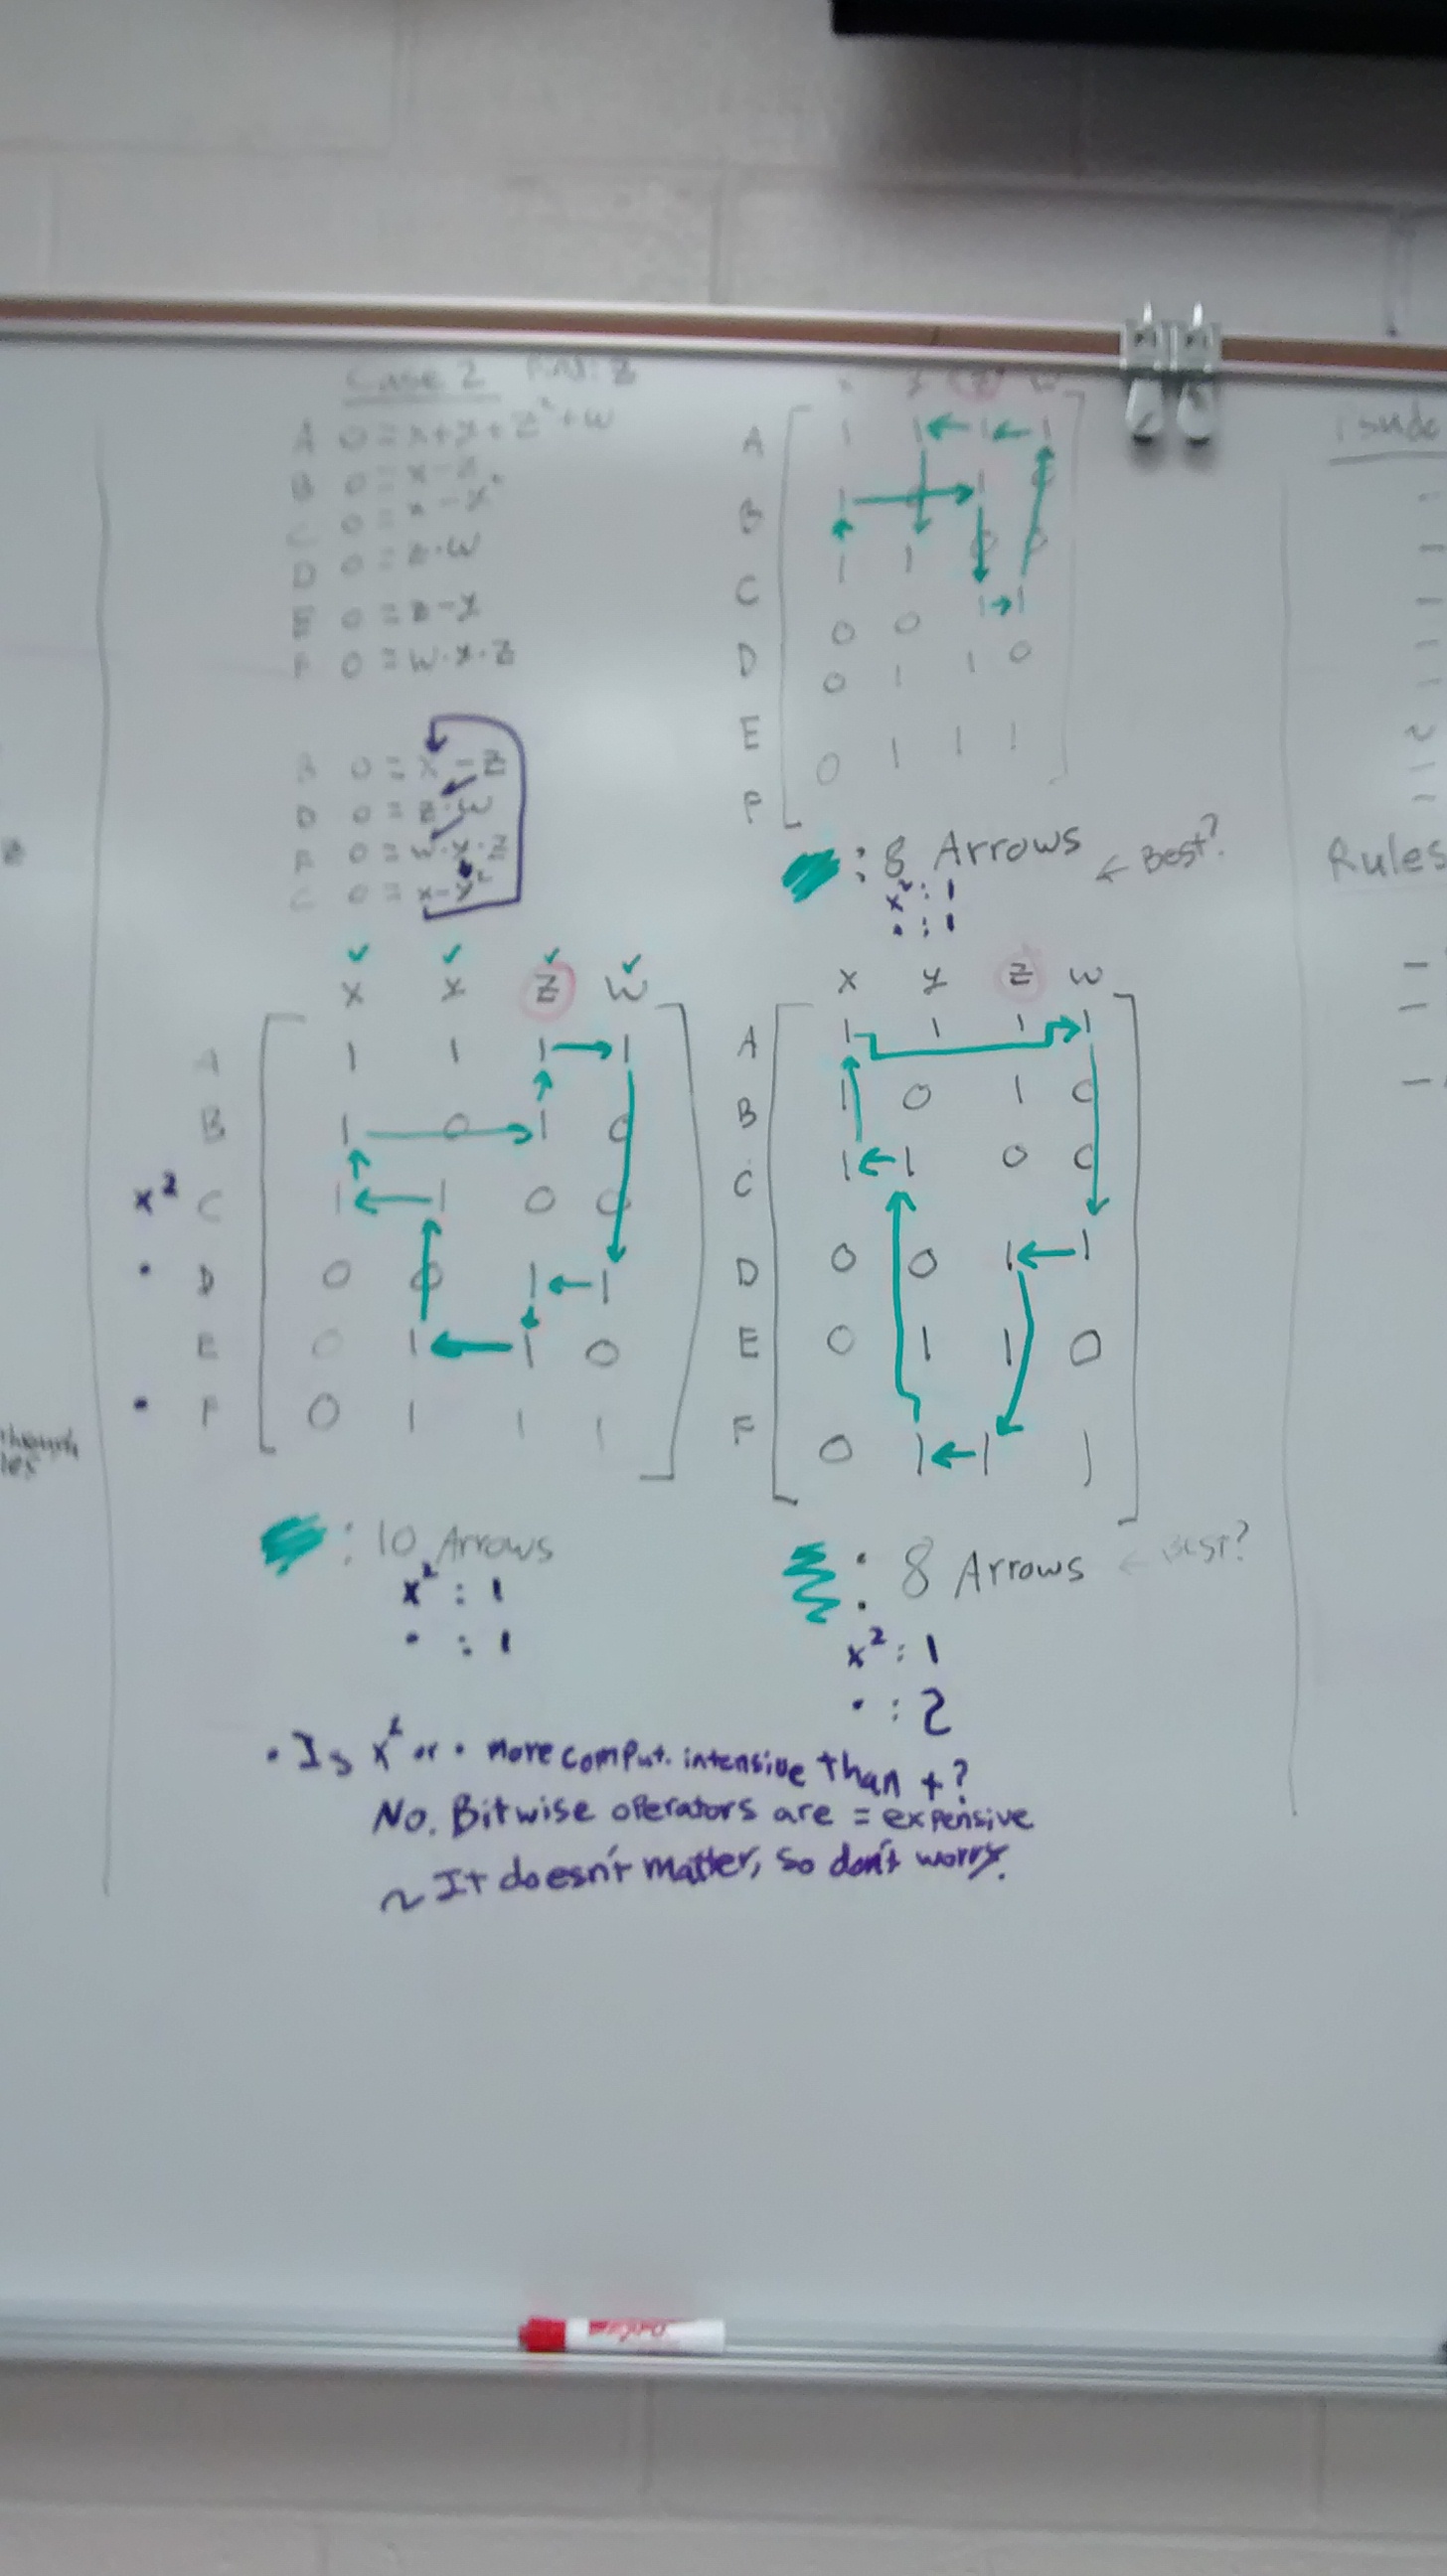 Case 2
A 0 = x+y+z²+w
B 0 = x-z
C 0 = x-y²
D 0 = z·w
E 0 = z-y
F 0 = w·y·z
B 0 = x-z
D 0 = z·w
F 0 = w·y·z
C 0 = x-y²
x y z w
A 1 1 1 1
B 1 0 1 0
C 1 1 0 0
D 0 0 1 1
E 0 1 1 0
F 0 1 1 1
: 8 Arrows ← Best?
x² : 1
• : 1
x y z w
A 1 1 1 1
B 1 0 1 0
x² C 1 1 0 0
• D 0 0 1 1
E 0 1 1 0
• F 0 1 1 1
: 10 Arrows
x² : 1
• : 1
x y z w
A 1 1 1 1
B 1 0 1 0
C 1 1 0 0
D 0 0 1 1
E 0 1 1 0
F 0 1 1 1
: 8 Arrows ← Best?
x² : 1
• : 2
• Is x² or • more comput. intensive than +?
No. Bitwise operators are = expensive
~ It doesn't matter, so don't worry.
Rules